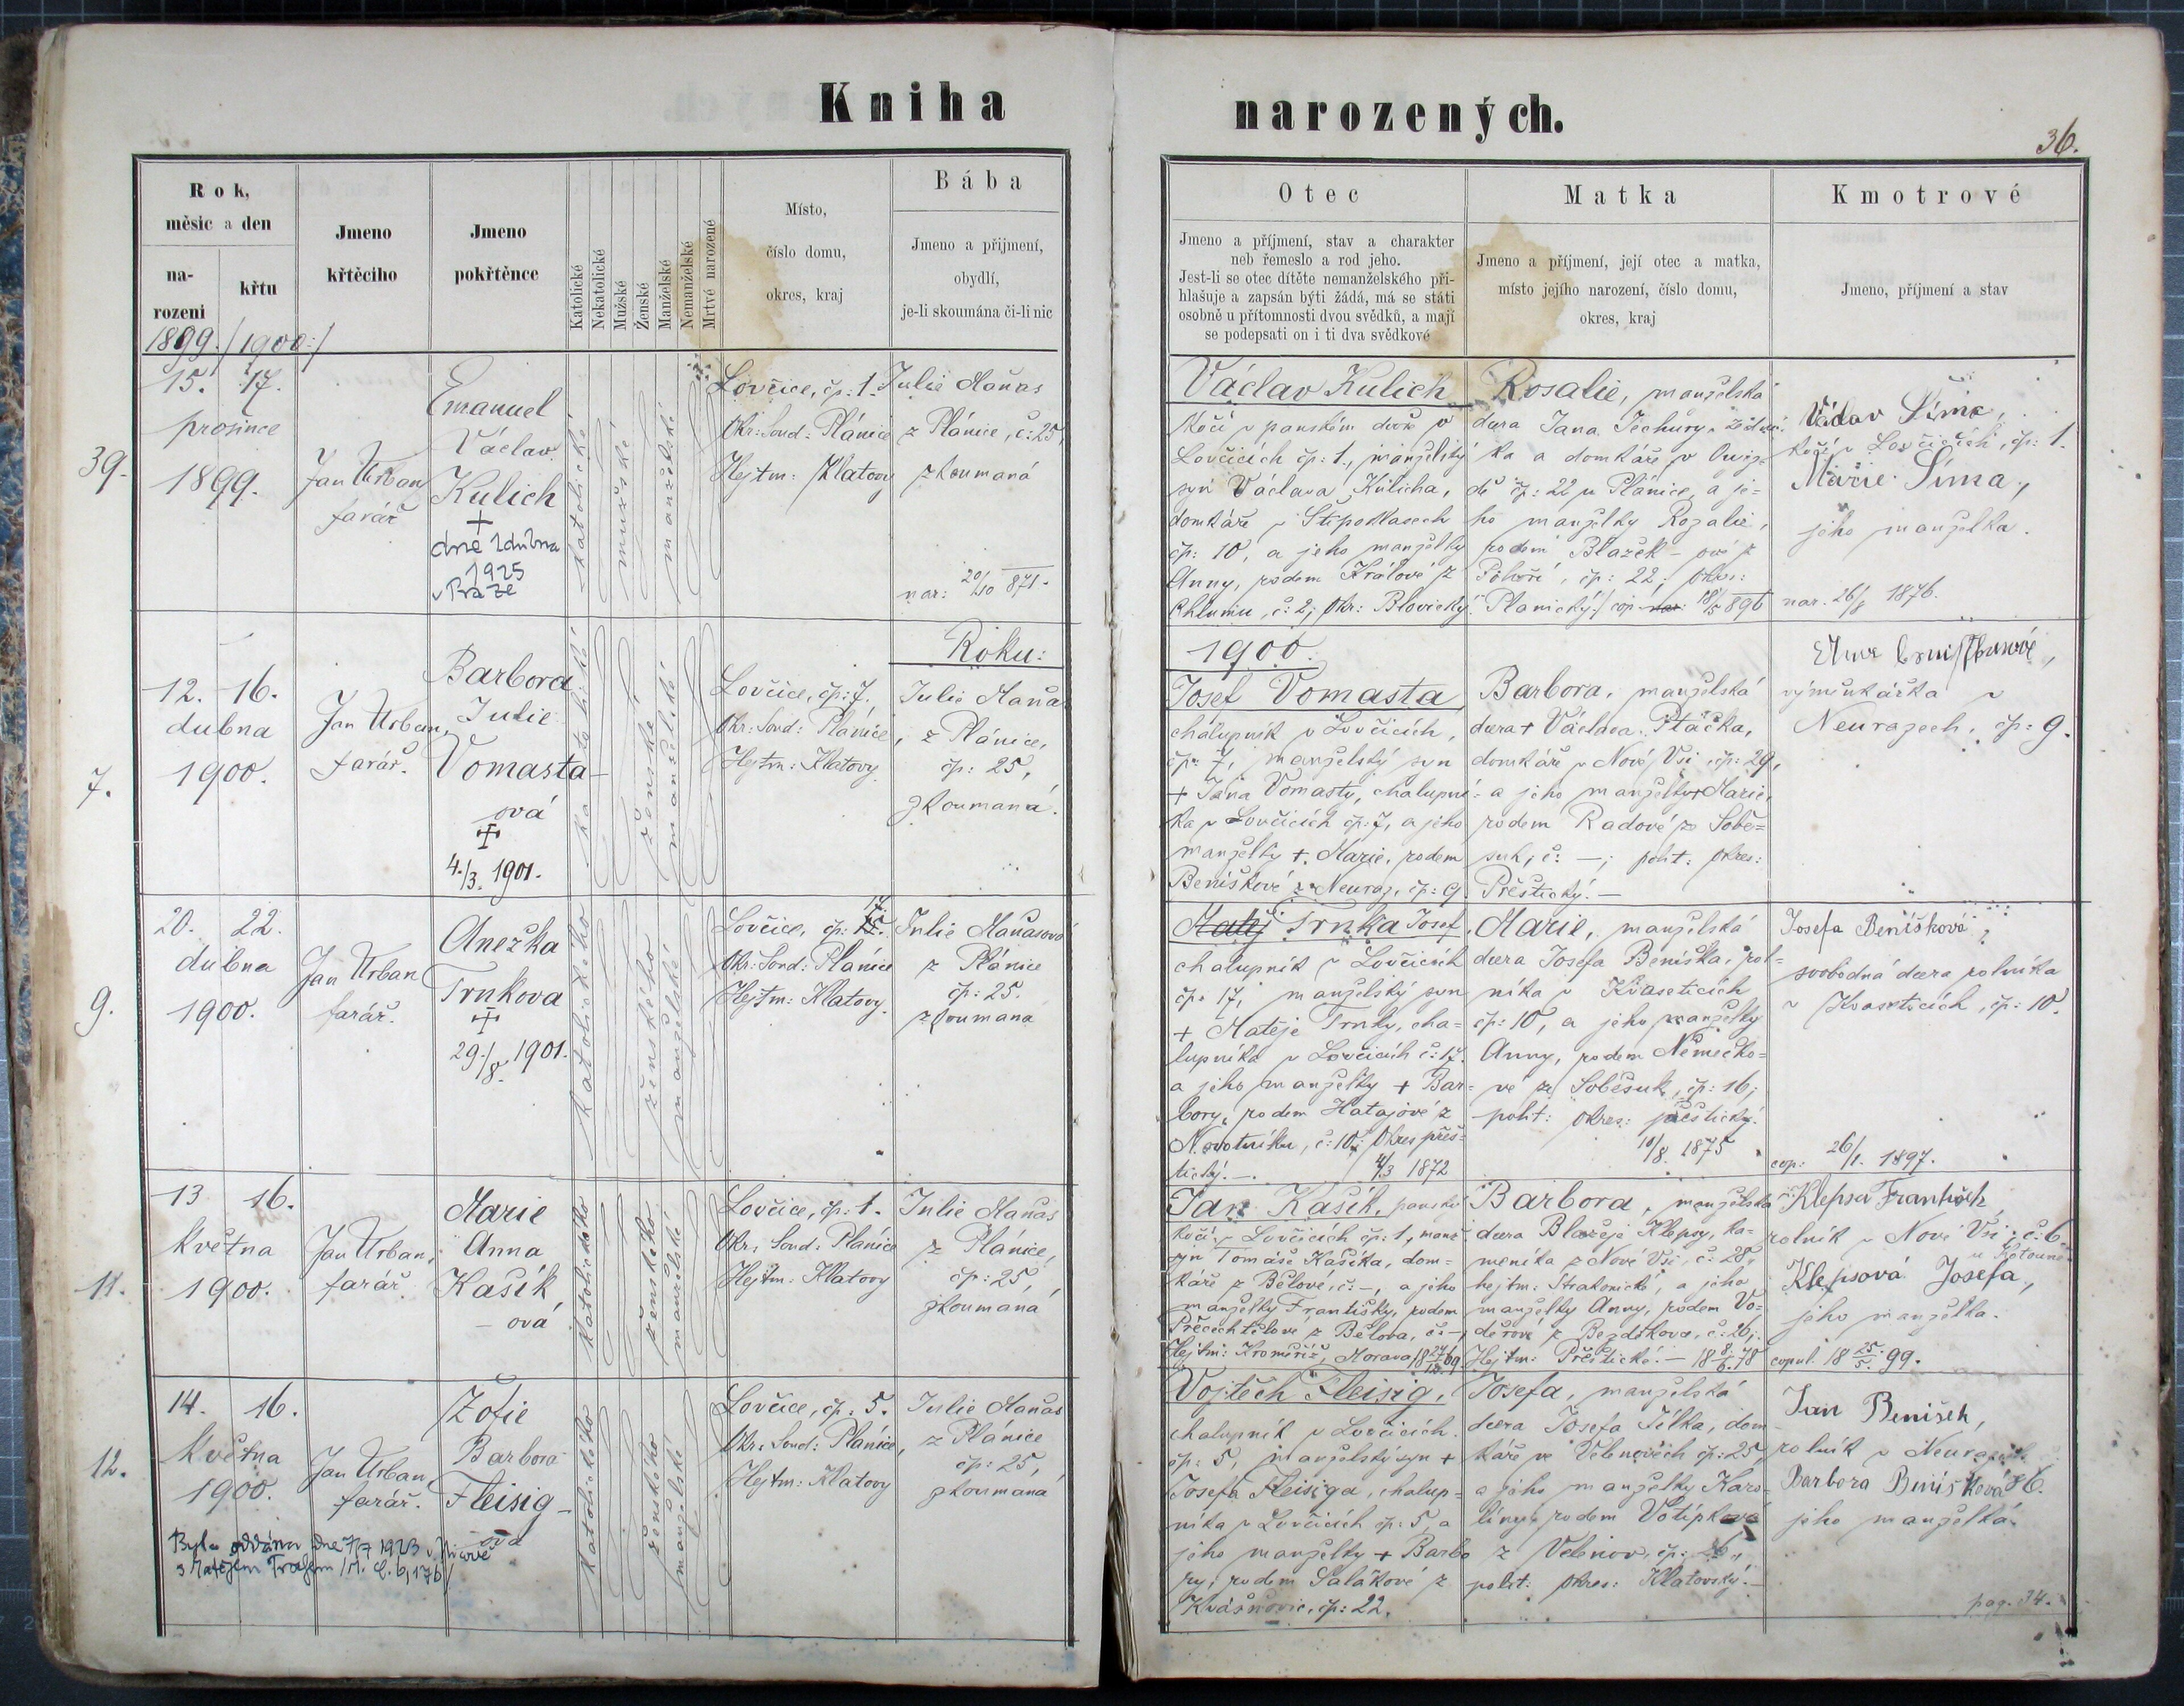 Kniha
narozených.
36.
Rok,
měsíc a den
na-
rozeni
křtu
Jmeno
křtěcího
Jmeno
pokřtěnce
Katolické
Nekatolické
Mužské
Ženské
Manželské
Nemanželské
Mrtvé narozené
Místo,
číslo domu,
okres, kraj
Bába
Jmeno a přijmení,
obydlí,
je-li skoumána či-li nic
Otec
Jmeno a příjmení, stav a charakter
neb řemeslo a rod jeho.
Jest-li se otec dítěte nemanželského při-
hlašuje a zapsán býti žádá, má se státi
osobně u přítomnosti dvou svědků, a mají
se podepsati on i ti dva svědkové
Matka
Jmeno a příjmení, její otec a matka,
místo jejího narození, číslo domu,
okres, kraj
Kmotrové
Jmeno, příjmení a stav
1899./1900:/
39.
15. 17.
prosince
1899.
Jan Urban
farář
Emanuel
Václav
Kulich
+
dne 2 dubna
1925
v Praze
katolické
mužské
manželské
Lovčice, čp: 1.
Okr: Soud: Plánice
Hejtm: Klatovy
Julie Maňas
z Plánice, č: 25,
zkoumaná
nar: 20/10 871.
Václav Kulich
kočí v panském dvoře v
Lovčicích čp: 1., manželský
syn Václava Kulicha,
domkáře v Štipoklasech
čp: 10, a jeho manželky
Anny, rodem Králové z
Chlumu, č: 2; Okr: Blovický.
Rosalie, manželská
dcera Jana Techury, zední-
ka a domkáře v Oujez-
dě čp: 22 u Plánice, a je-
ho manželky Rozalie,
rodem Blažek-ové z
Pohoří, čp: 22; Okres:
Planický:/ cop: 18/5 896
Václav Šíma,
kočí v Lovčicích, čp: 1.
Marie Šíma,
jeho manželka.
nar. 26/8 1876.
Roku:
1900.
7.
12. 16.
dubna
1900.
Jan Urban,
farář.
Barbora
Julie
Vomasta-
ová
4./3. 1901.
katolické
ženské
manželské
Lovčice, čp: 7,
Okr: Soud: Plánice,
Hejtm: Klatovy
Julie Maňas
z Plánice,
čp: 25,
zkoumaná.
Josef Vomasta,
chalupník v Lovčicích,
čp: 7, manželský syn
+ Jana Vomasty, chalupní-
ka v Lovčicích čp: 7, a jeho
manželky +. Marie, rodem
Beniškové z Neuraz, čp: 9.
Barbora, manželská
dcera + Václava Ptáčka,
domkáře v Nové Vsi čp: 29,
a jeho manželky + Marie,
rodem Radové ze Sobě-
suk, č: —; polit: Okres:
Přeštický.—
výměnkářka v
Neurazech, čp: 9.
9.
20. 22.
dubna
1900.
Jan Urban
farář.
Anežka
Trnkova
29./8. 1901.
katolického
ženského
manželské
Lovčice, čp: 17.
Okr: Soud: Plánice
Hejtm: Klatovy.
Julie Maňasová
z Plánice
čp: 25.
zkoumaná
Matěj Trnka Josef,
chalupník v Lovčicích
čp: 17, manželský syn
+ Matěje Trnky, cha-
lupníka v Lovčicích č: 17.
a jeho manželky + Bar-
bory, rodem Hatajové z
Novotníku, č: 10; Okres přeš-
tický.—. 4/3 1872
Marie, manželská
dcera Josefa Beniška, rol-
níka v Kvaseticích
čp: 10, a jeho manželky
Anny, rodem Němečko-
vé ze Soběsuk, čp: 16;
polit: Okres: přeštický.
10/8. 1875
Josefa Benišková,
svobodná dcera rolníka
v Kvaseticích, čp: 10.
cop: 26/1. 1897.
11.
13 16.
května
1900.
Jan Urban,
farář.
Marie
Anna
Kašík
-ová
katolického
ženského
manželské
Lovčice, čp: 1.
Okr: Soud: Plánice
Hejtm: Klatovy
Julie Maňas
z Plánice,
čp: 25,
zkoumaná
Jan Kašík, panský
kočí v Lovčicích čp: 1, manž.
syn Tomáše Kašíka, dom-
káře z Bělova, č: —, a jeho
manželky Františky, rodem
Přecechtělové z Bělova, č: —,
Hejtm: Kroměříž, Morava 18 24/12 69.
Barbora, manželská
dcera Blažeje Klepsy, ka-
meníka z Nové Vsi, č: 28,
hejtm: Strakonické, a jeho
manželky Anny, rodem Vo-
děrové z Bezděkova, č: 26;
Hejtm: Přeštické.— 18 8./6. 78
Klepsa František,
rolník v Nové Vsi, č: 6.
u Kotouně
Klepsová Josefa,
jeho manželka.
copul. 18 25/5. 99.
12.
14. 16.
května
1900.
Jan Urban,
farář.
Žofie
Barbora
Fleisig-
ova
Byla oddána dne 7/7 1923 v
s Matějem
katolického
ženského
manželské
Lovčice, čp. 5.
Okr: Soud: Plánice,
Hejtm: Klatovy
Julie Maňas
z Plánice
čp: 25,
zkoumaná
Vojtěch Fleisig,
chalupník v Lovčicích.
čp: 5, manželský syn +
Josefa Fleisiga, chalup-
níka v Lovčicích čp: 5, a
jeho manželky + Barbo
ry, rodem Salákové z
Kvášňovic, čp: 22.
Josefa, manželská
dcera Josefa Jílka, dom-
káře ve Velenovech čp: 25,
a jeho manželky Karo-
líny, rodem Votípkové
z Velenov, čp: 26,
polit: Okres: Klatovský.—
Jan Benišek,
rolník v Neurazech.
Barbora Benišková 86.
jeho manželka.
pag. 34.